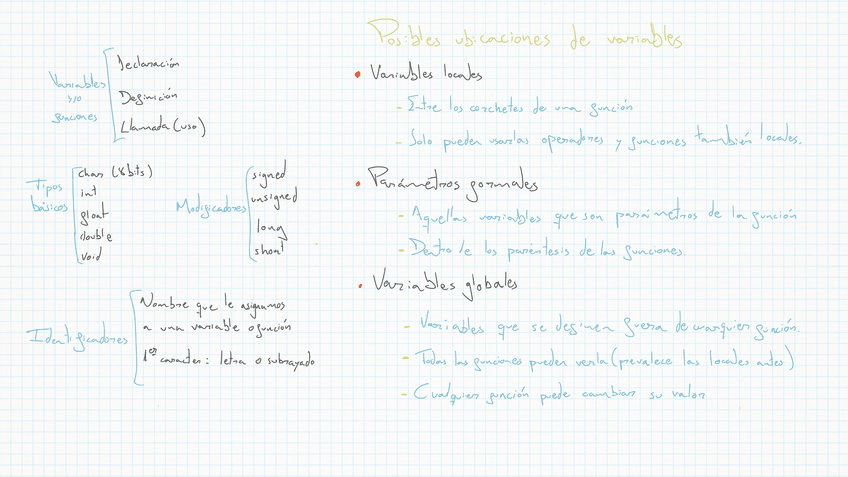 Variables
y/o
funciones
Declaración
Definición
Llamada (uso)
Tipos
básicos
char (8 bits)
int
float
double
void
Modificadores
signed
unsigned
long
short
Identificadores
Nombre que le asignamos
a una variable o función
1er caracter: letra o subrayado
Posibles ubicaciones de variables
• Variables locales
- Entre los corchetes de una función
- Solo pueden usarlas operadores y funciones también locales.
• Parámetros formales
- Aquellas variables que son parámetros de la función
- Dentro de los paréntesis de las funciones
• Variables globales
- Variables que se definen fuera de cualquier función.
- Todas las funciones pueden verla (prevalece las locales antes)
- Cualquier función puede cambiar su valor